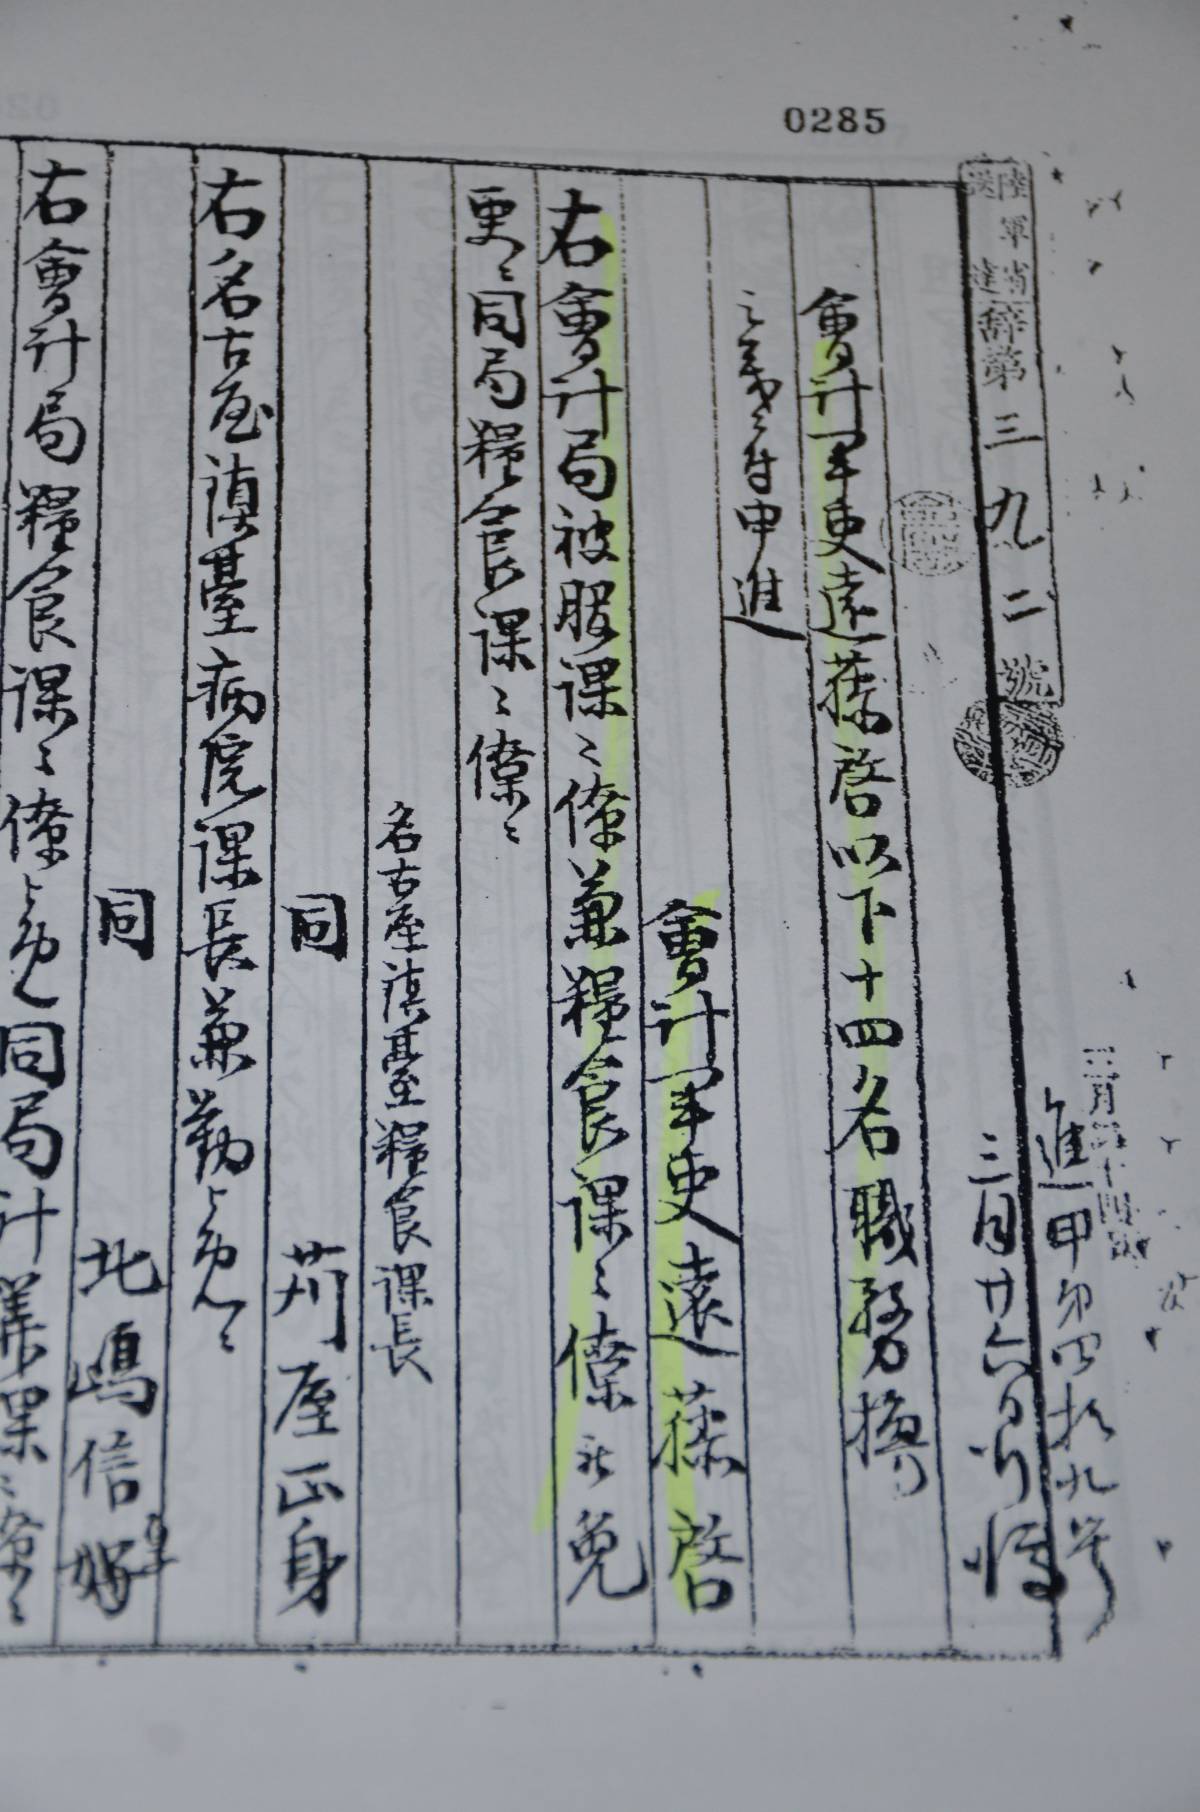 0285
陸軍省
送達
辞第三九二號
進甲第四拾九号
三月廿六日
會計軍吏遠藤啓以下十四名職務換
之義ニ付申進
會計軍吏遠藤啓
右會計局被服課々僚兼糧食課々僚被免
更ニ同局糧食課々僚ニ
名古屋鎮臺糧食課長
同 苅屋正身
右名古屋鎮臺病院課長兼勤被免ニ
同 北嶋信
右會計局糧食課々僚被免同局計算課々僚ニ